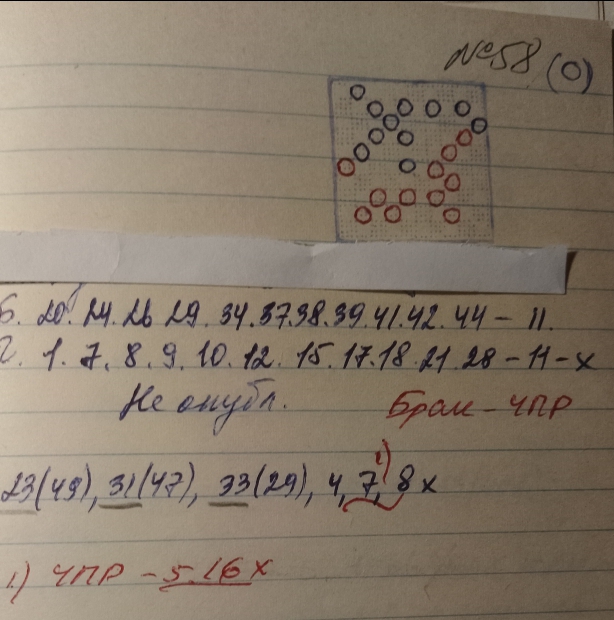 №58 (0)
Б. 20. 24. 26 29. 34. 37. 38. 39. 41. 42. 44 - 11.
1. 7. 8. 9. 10. 12. 15. 17. 18. 21. 28 - 11 - x
Не опубл. Брак - ЧПР
23(49), 31(47), 33(29), 4, 7, 8 x
1.)
1.) ЧПР - 5. 16 x